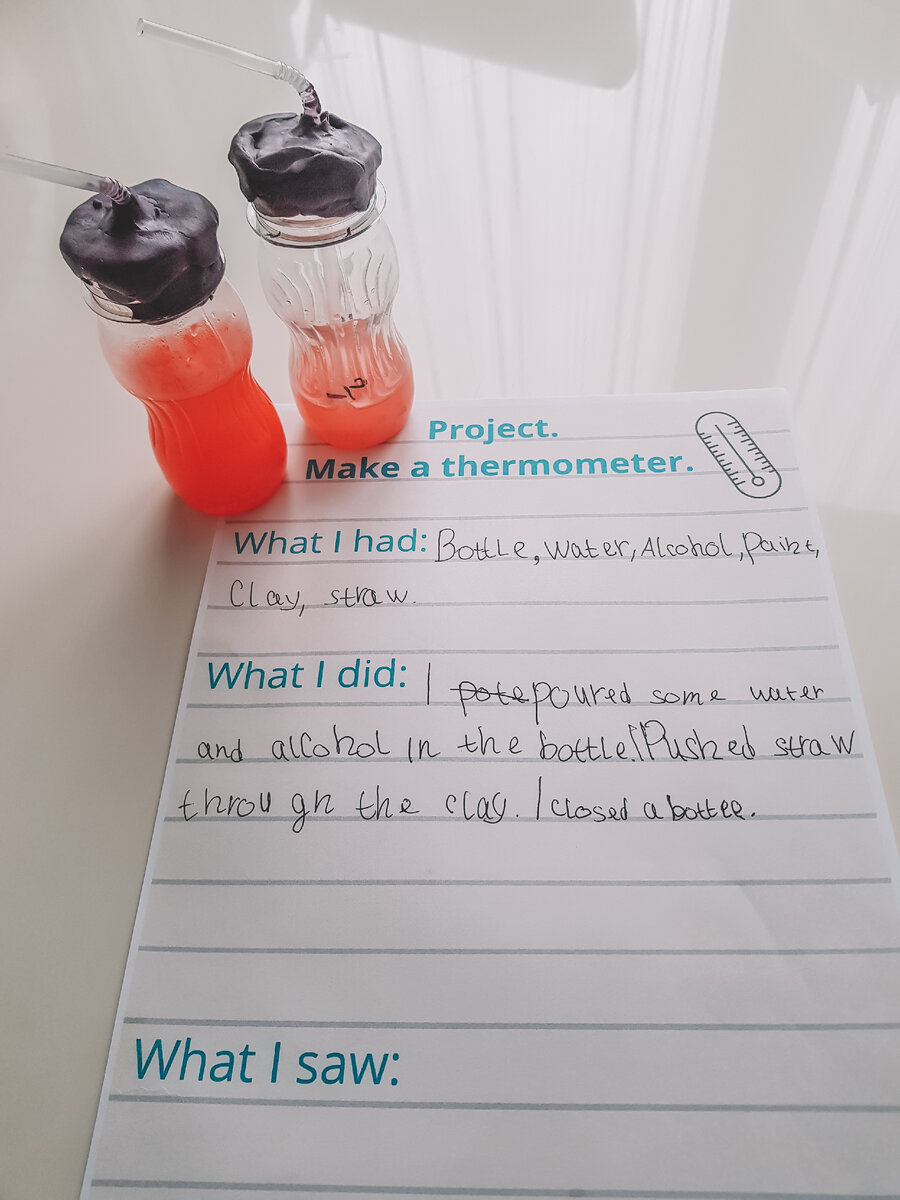 Project.
Make a thermometer.
What I had: Bottle, water, Alcohol, paint,
Clay, straw.
What I did: I pote poured some water
and alcohol in the bottle. I Pushed straw
through the clay. I closed a bottle.
What I saw: